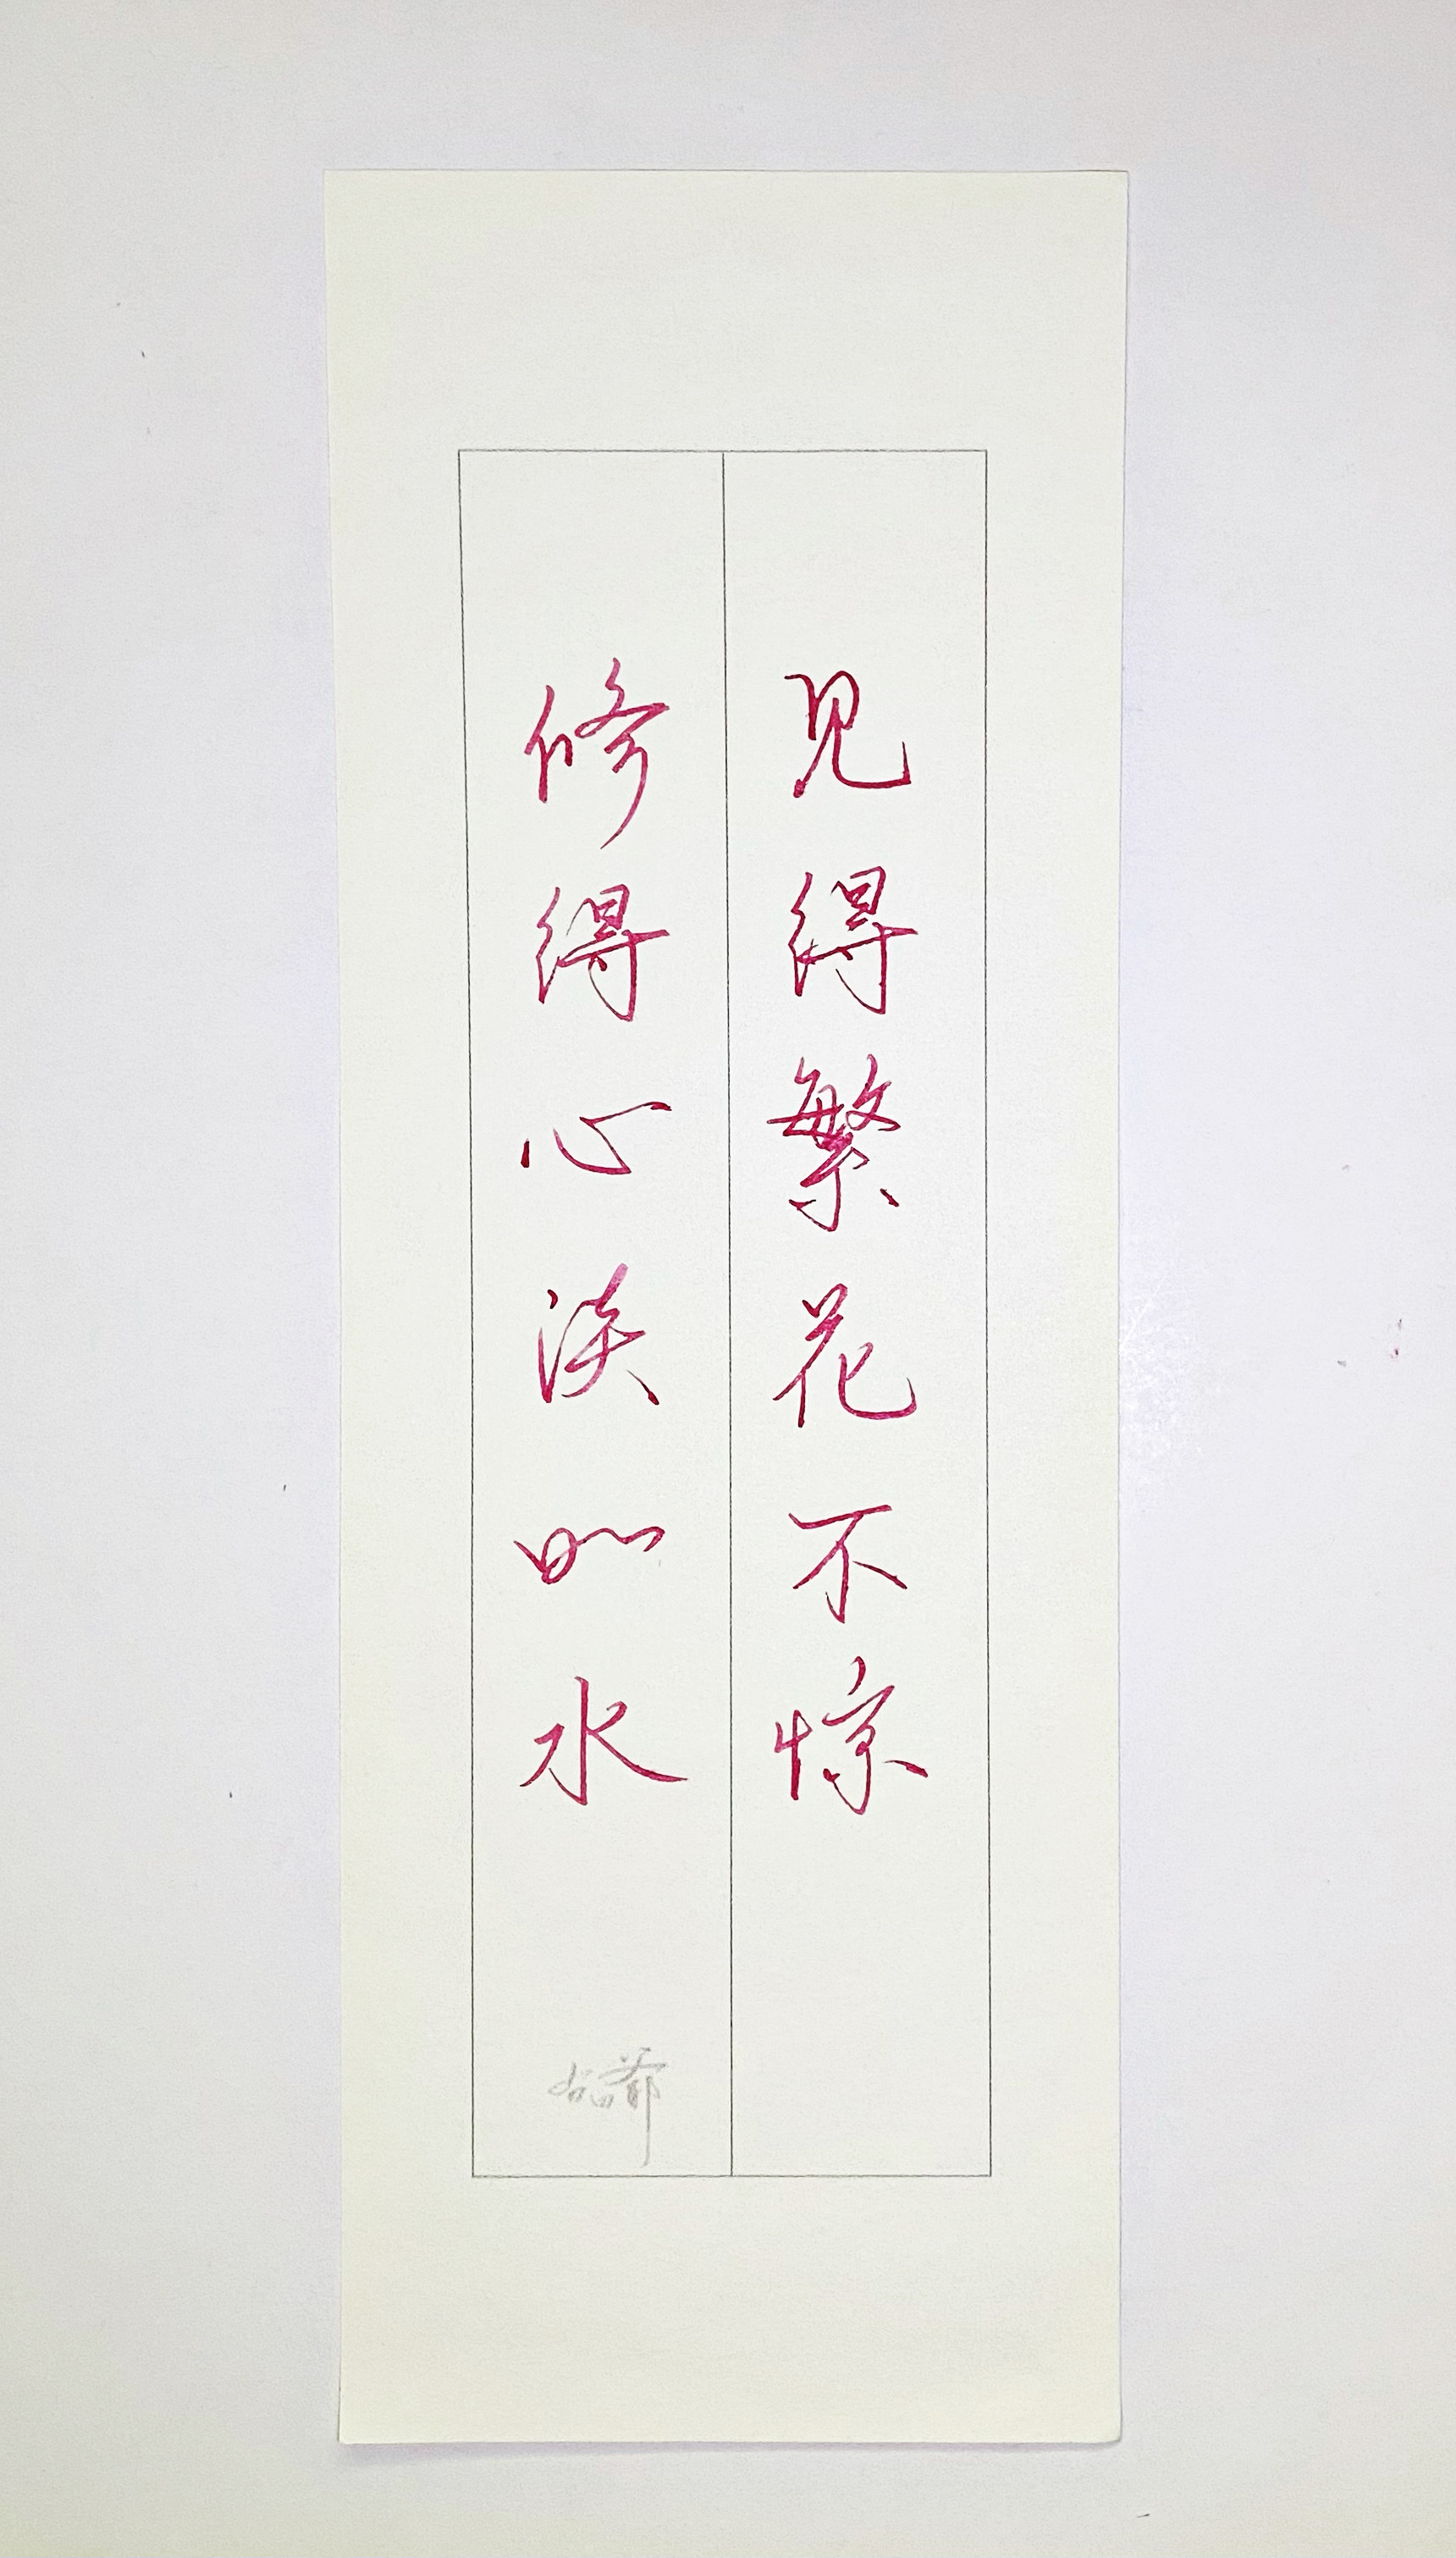 见得繁花不惊
修得心淡如水